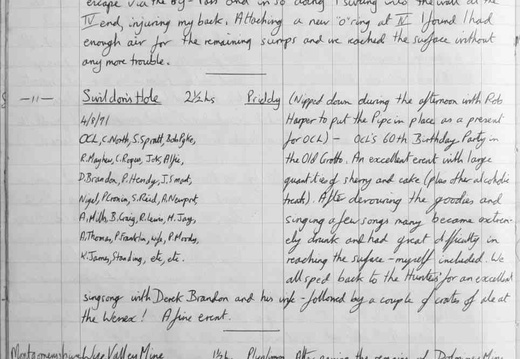 escape via the by-pass and in so doing I swung into the wall at the
IV end, injuring my back. Attaching a new 'o' ring at IV I found I had
enough air for the remaining sumps and we reached the surface without
any more trouble.
-11- Swildon's Hole 2½ hrs Priddy (Nipped down during the afternoon with Rob
4/8/71 Harper to put the Pipe in place as a present
OCL, C. North, S. Spratt, Bob Pyke, for OCL) - OCL's 60th Birthday Party in
R. Mayhew, C. Rogue, Jok, Alfie, the Old Grotto. An excellent event with large
D. Brandon, P. Hendy, J. Smart, quantities of sherry and cake (plus other alcoholic
Nigel, P. Cronin, S. Reid, A. Newport, treats). After devouring the goodies and
A. Mills, B. Craig, R. Lewis, M. Jay, singing a few songs many became extrem-
A. Thomas, P. Franklin, wife, P. Moody, ely drunk and had great difficulty in
K. James, Standing, etc, etc. reaching the surface - myself included. We
all sped back to the Hunters' for an excellent
singsong with Derek Brandon and his wife - followed by a couple of crates of ale at
the Wessex! A fine event.